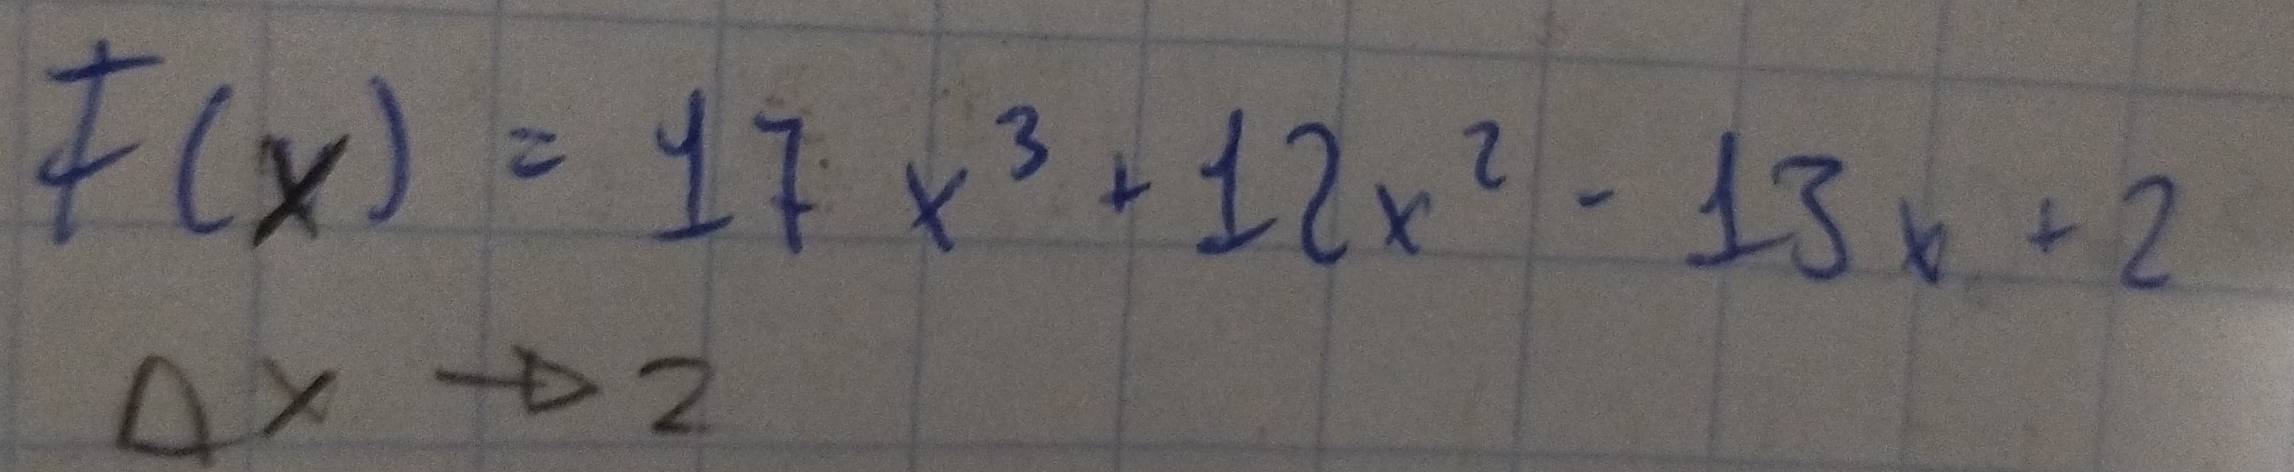 F(x) = 17x³ + 12x² - 13x + 2
Δx → 2